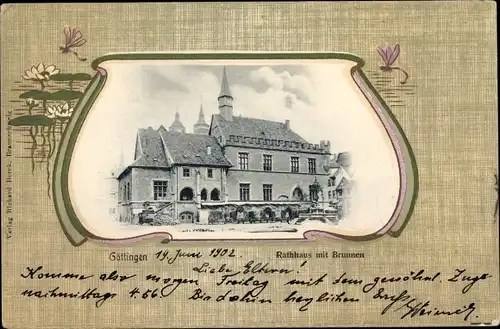 Göttingen 19 Juni 1902 Rathhaus mit Brunnen
Liebe Eltern!
Komme also morgen Freitag mit dem gewöhnl. Zuge
nachmittags 4.56 Bis dahin herzlichen
Verlag Richard Borek, Braunschweig